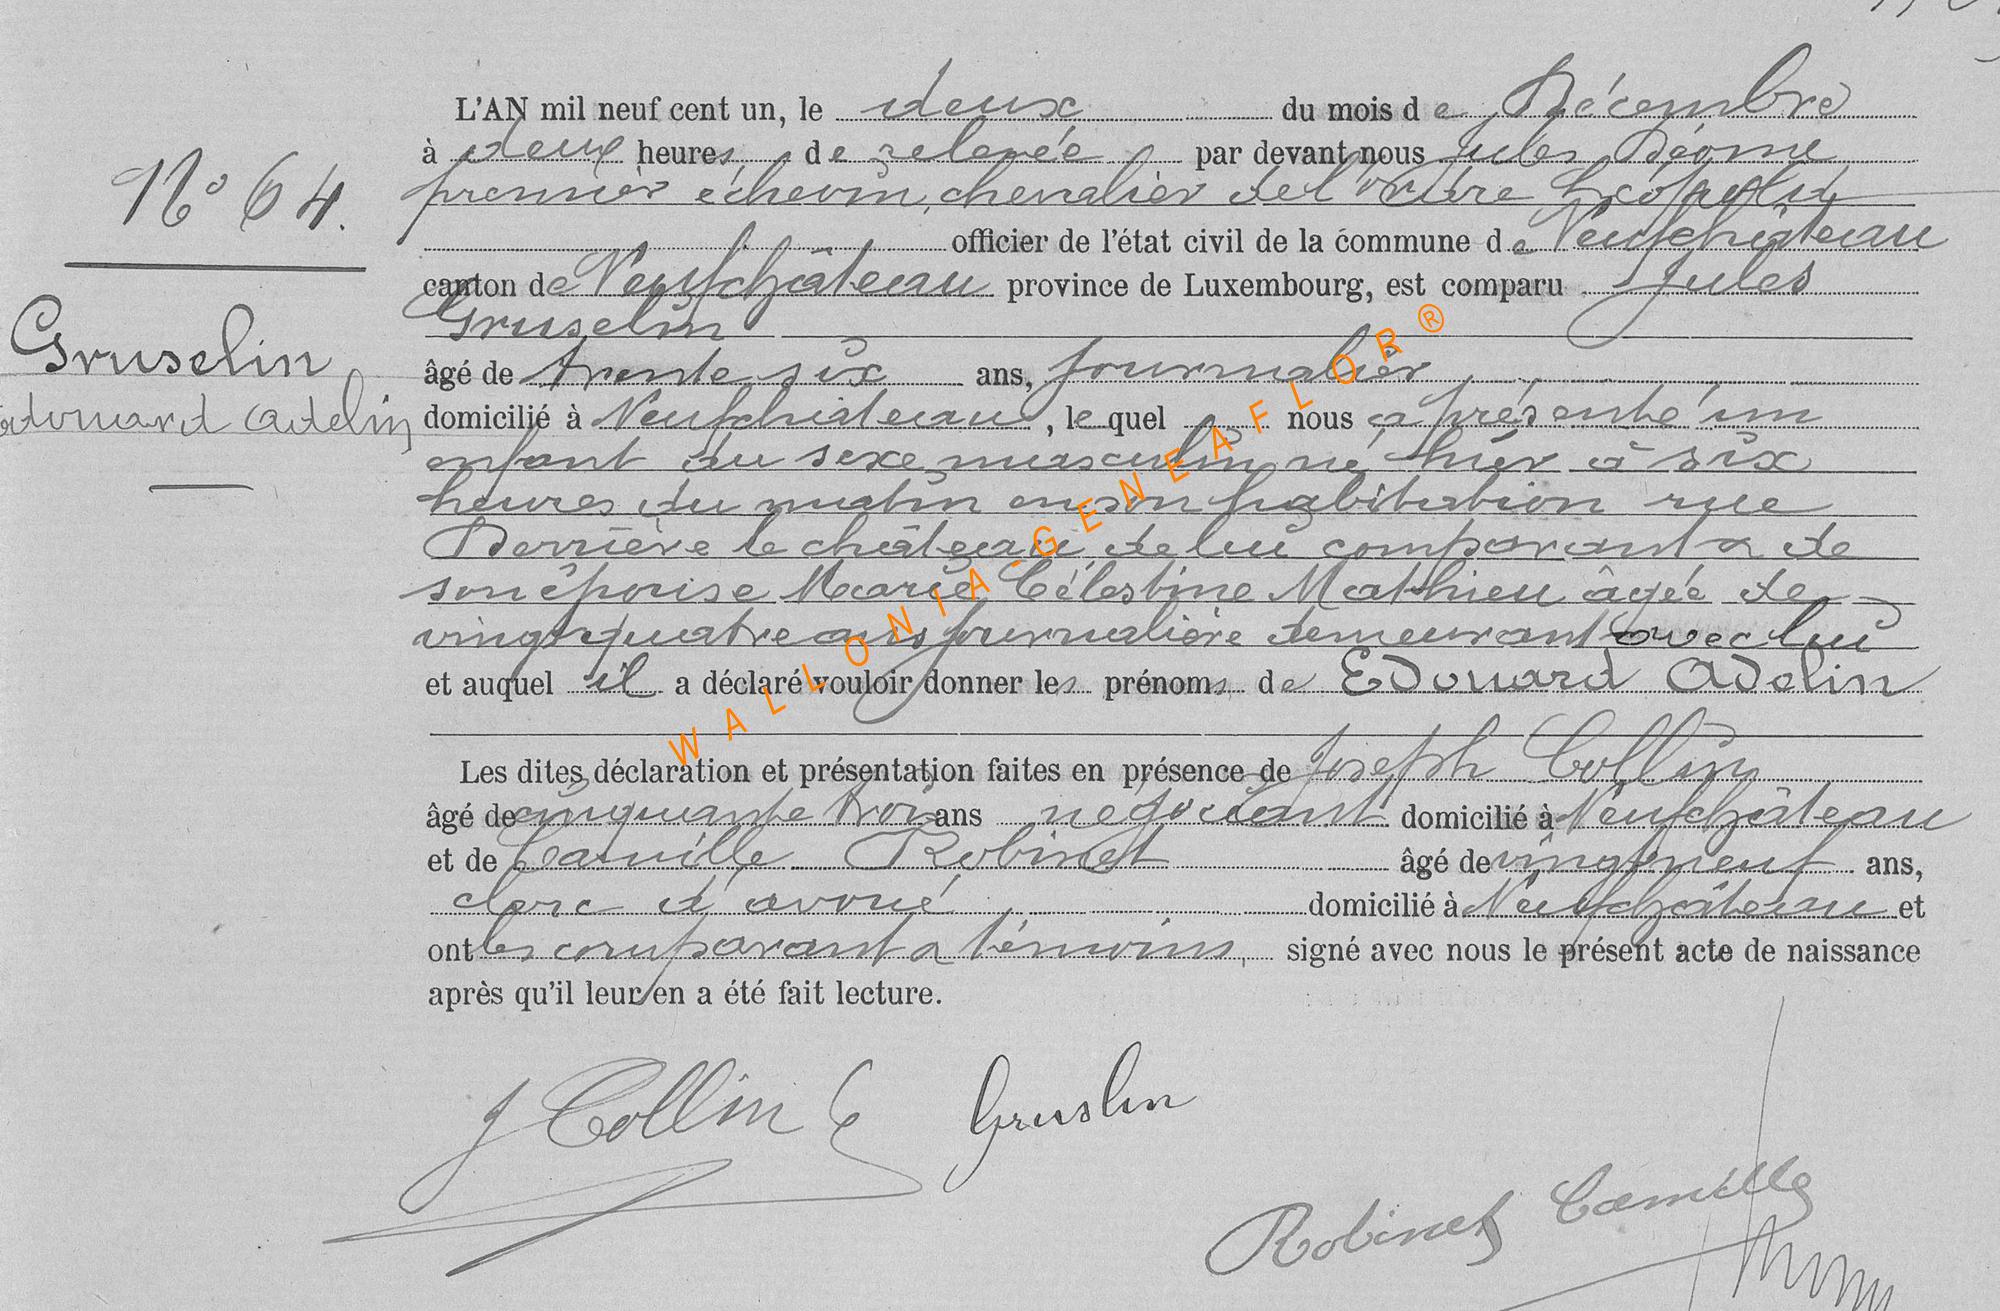 N° 64.
Gruselin
Edouard Adelin
L'AN mil neuf cent un, le deux du mois de Décembre
à deux heures de relevée par devant nous Jules Déome
premier échevin, chevalier de l'Ordre Léopold
officier de l'état civil de la commune de Neufchâteau
canton de Neufchâteau province de Luxembourg, est comparu Jules
Gruselin
âgé de trente six ans, journalier
domicilié à Neufchâteau, lequel nous a présenté un
enfant du sexe masculin né hier à six
heures du matin en son habitation rue
Derrière le château, de lui comparant & de
son épouse Marie Célestine Mathieu âgée de
vingt quatre ans journalière demeurant avec lui
et auquel il a déclaré vouloir donner les prénoms de Edouard Adelin
Les dites déclaration et présentation faites en présence de Joseph Collin
âgé de cinquante trois ans négociant domicilié à Neufchâteau
et de Camille Robinet âgé de vingt neuf ans,
clerc d'avoué domicilié à Neufchâteau et
ont les comparant & témoins, signé avec nous le présent acte de naissance
après qu'il leur en a été fait lecture.
J Collin Gruslin
Robinet Camille
WALLONIA.GENEAFLOR®